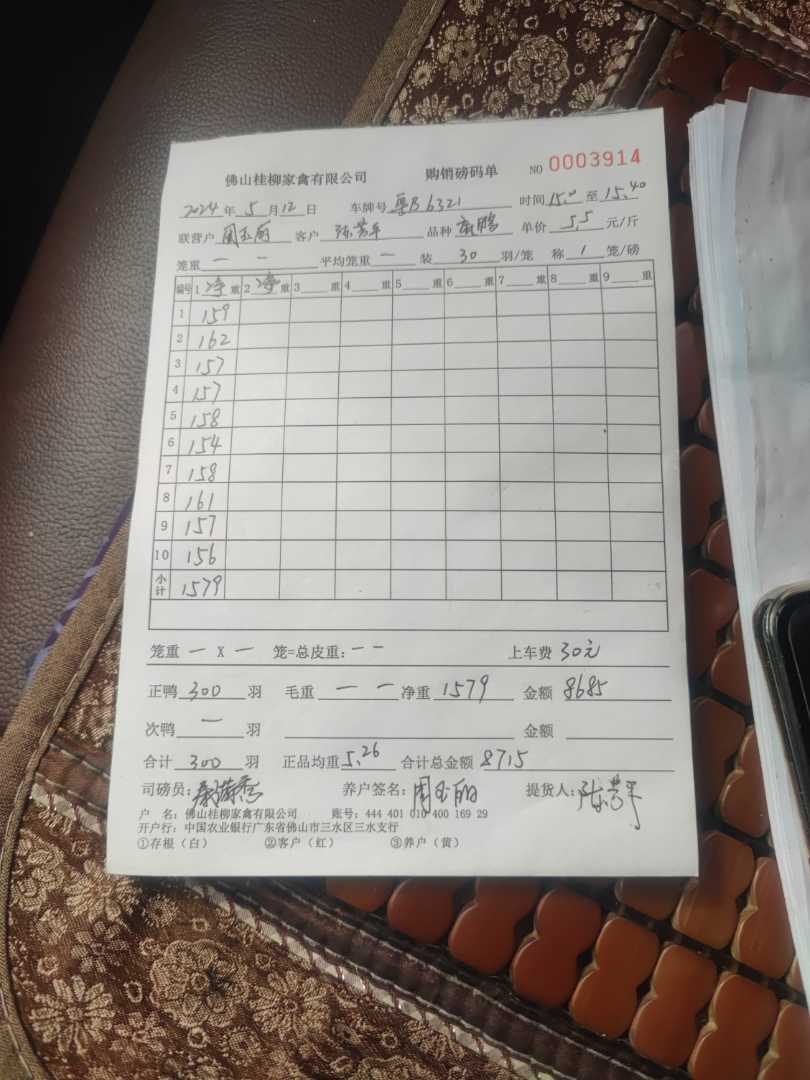 佛山桂柳家禽有限公司 购销磅码单 NO 0003914
2024年5月12日 车牌号 粤B6321 时间15.0至15.40
联营户 客户 陈芳平 品种 单价 5.5 元/斤
笼重 — — 平均笼重 — 装 30 羽/笼 称 1 笼/磅
编号 1 净 重 2 净 重 3 重 4 重 5 重 6 重 7 重 8 重 9 重
1 159
2 162
3 157
4 157
5 158
6 154
7 158
8 161
9 157
10 156
小计 1579
笼重 — X — 笼=总皮重: — — 上车费 30元
正鸭 300 羽 毛重 — — 净重 1579 金额 8685
次鸭 — 羽 金额
合计 300 羽 正品均重 5.26 合计总金额 8715
司磅员: 养户签名: 提货人: 陈芳平
户 名: 佛山桂柳家禽有限公司 账号: 444 401 010 400 169 29
开户行: 中国农业银行广东省佛山市三水区三水支行
①存根（白） ②客户（红） ③养户（黄）